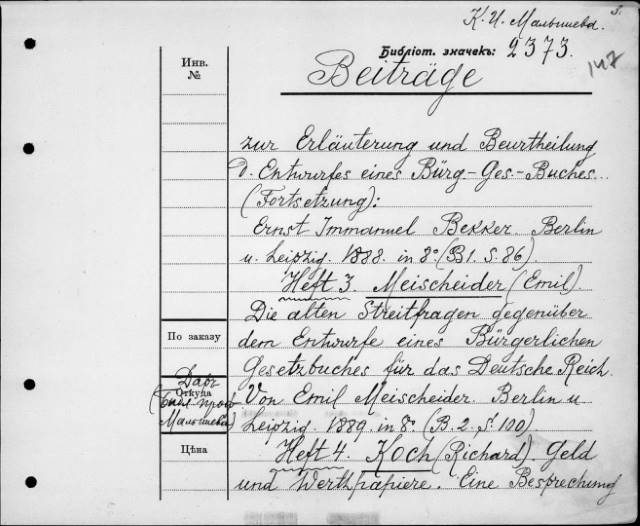 К. И. Малышева.
3.
Библіот. значекъ: 2373.
147
Инв. №
Beiträge
zur Erläuterung und Beurtheilung
d. Entwurfes eines Bürg.-Ges.-Buches...
(Fortsetzung):
Ernst Immanuel Bekker. Berlin
u. Leipzig. 1888. in 8º (B 1. S. 86).
Heft 3. Meischeider (Emil).
Die alten Streitfragen gegenüber
dem Entwurfe eines Bürgerlichen
Gesetzbuches für das Deutsche Reich.
Von Emil Meischeider. Berlin u.
Leipzig. 1889. in 8º (B. 2. S. 100).
Heft 4. Koch (Richard). Geld
und Werthpapiere. Eine Besprechung
По заказу
Даръ
Откуда
Малышева)
Цѣна